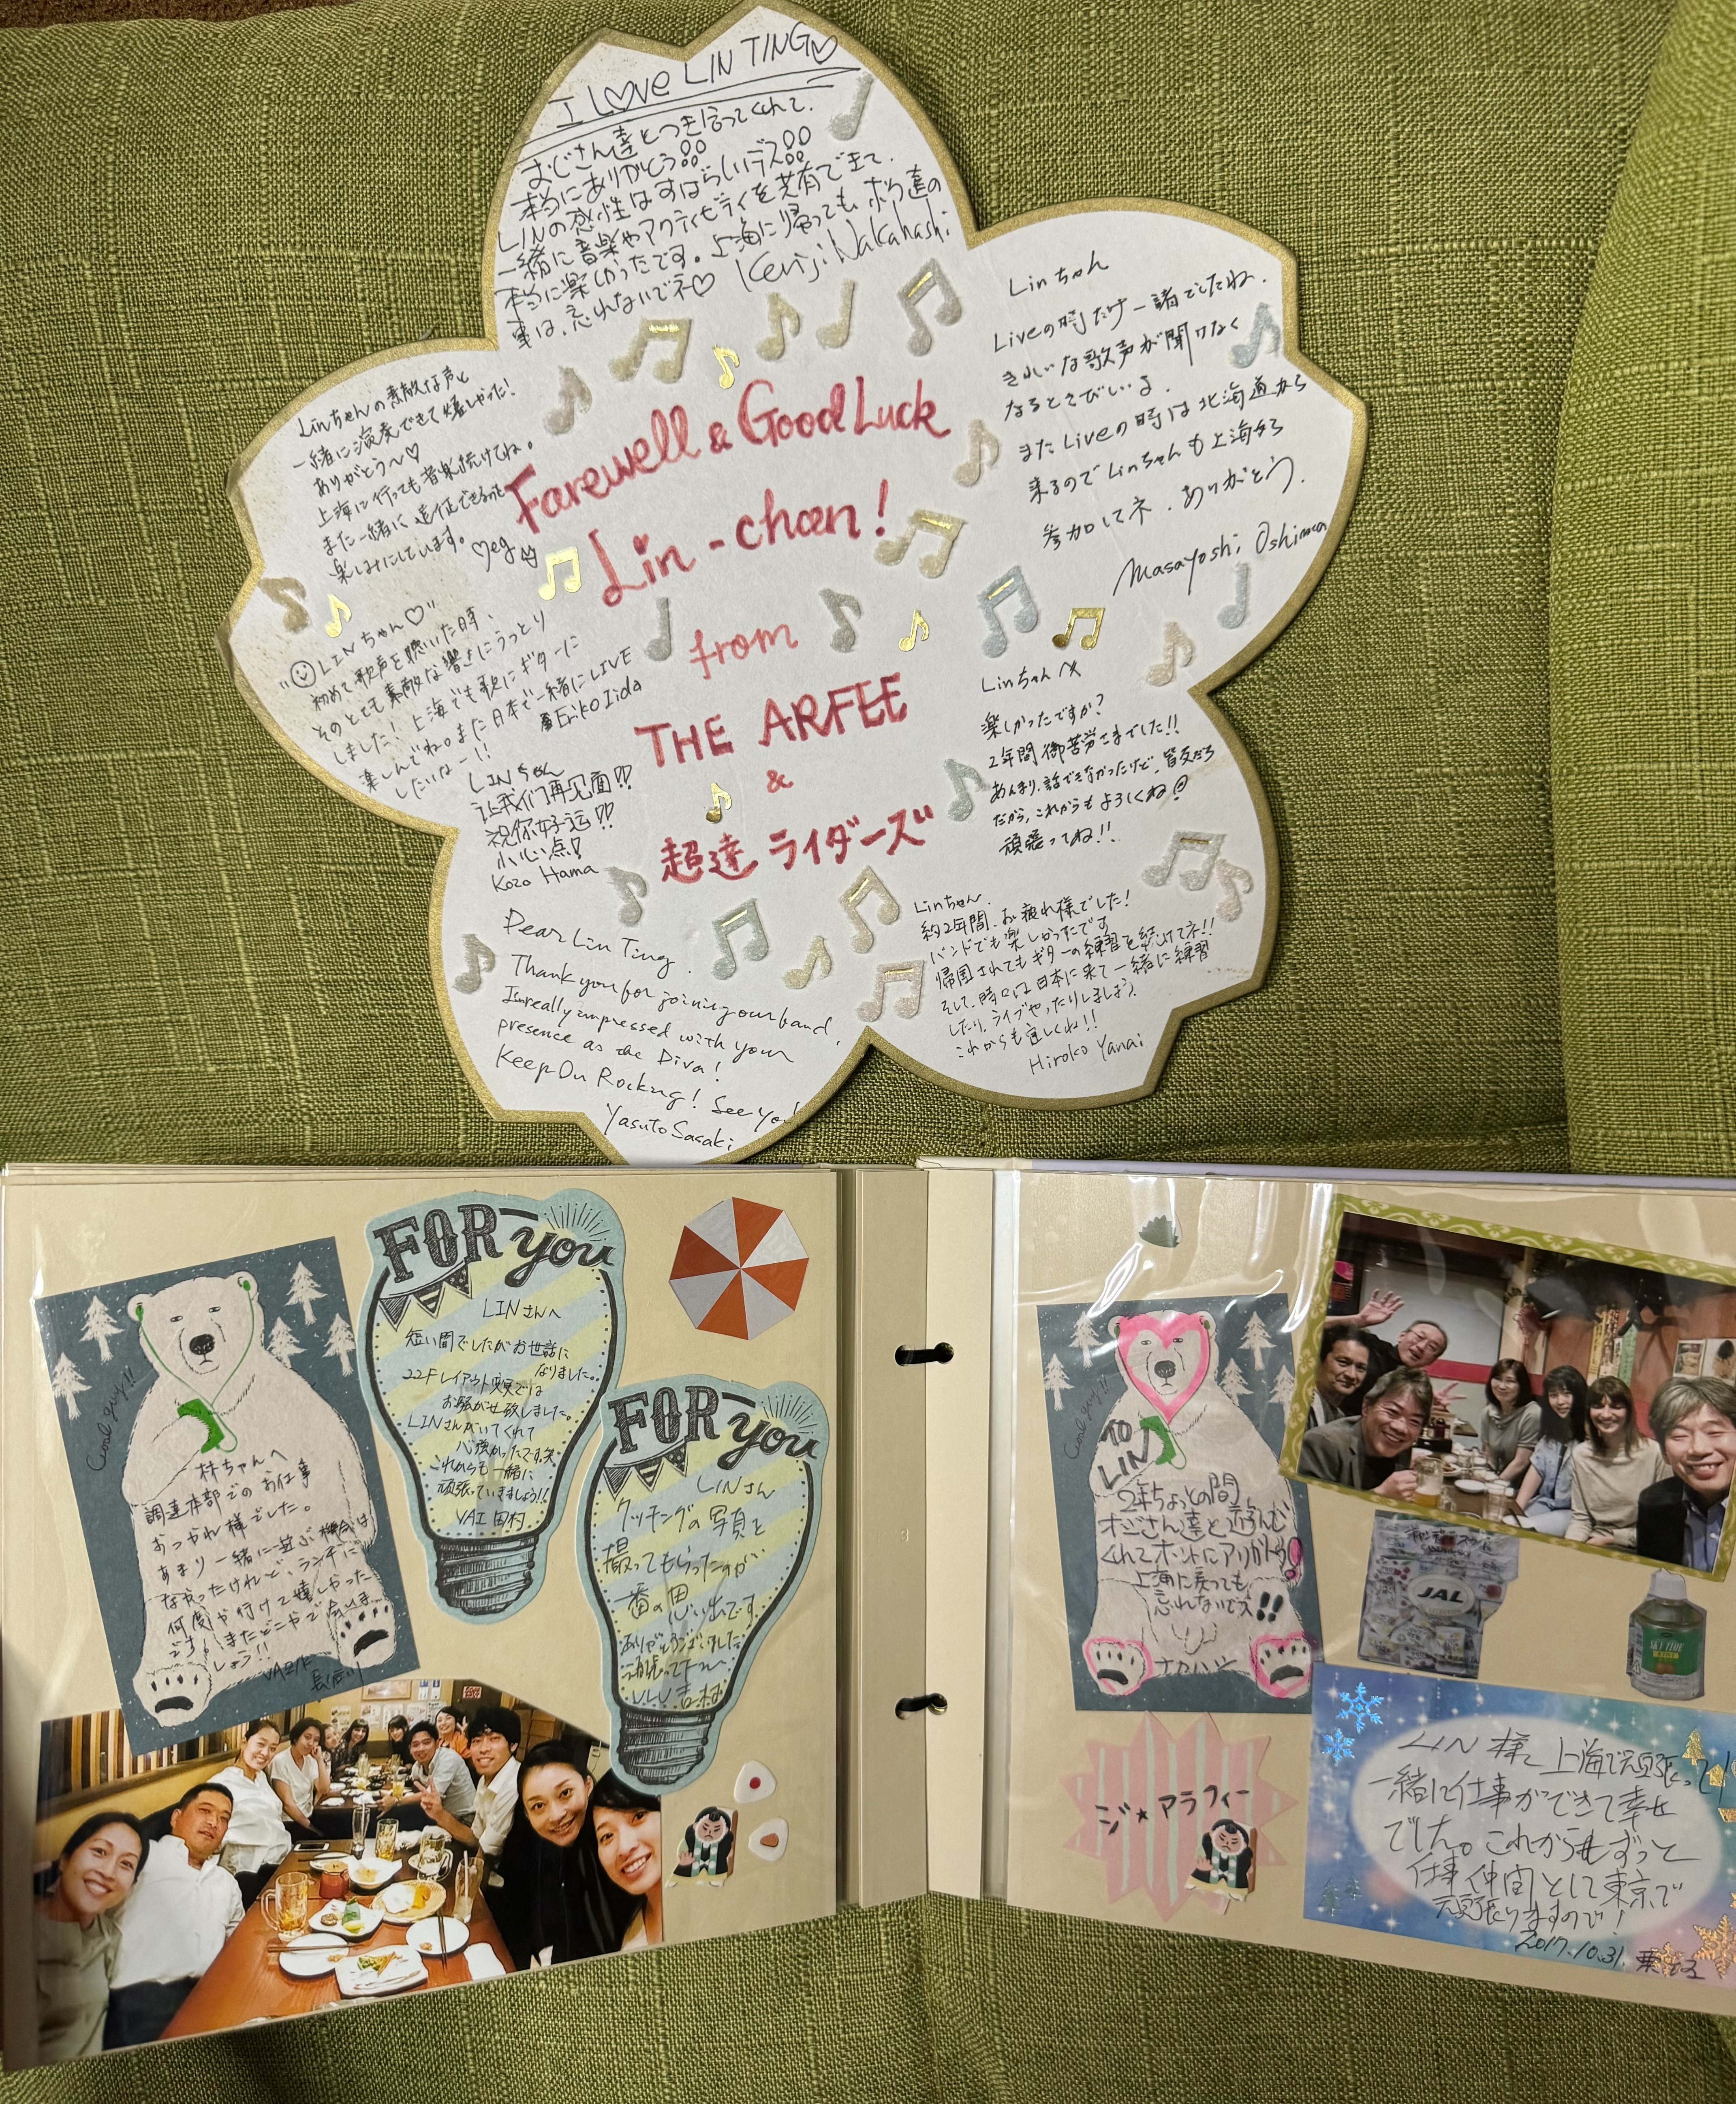 I LOVE LIN TING♡
おじさん達とつき合ってくれて、
本当にありがとう!!
LINの感性はすばらしいデス!!
一緒に音楽やアクティビティを共有できて、
本当に楽しかったです。上海に帰っても、ボク達の
事は、忘れないでネ♡ Kenji Nakahashi
Linちゃんの素敵な声と
一緒に演奏できて嬉しかった!
ありがとう〜♡
上海に行っても音楽続けてね。
また一緒に
楽しみにしています。 ♡eg
Linちゃん
Liveの時だけ一緒でしたね.
きれいな歌声が聞けなく
なるとさびしいよ.
またLiveの時は北海道から
来るのでLinちゃんも上海から
参加してネ.ありがとう.
Masayoshi Oshima
Farewell & Good Luck
Lin-chan!
from
THE ARFEE
&
超達ライダーズ
"LINちゃん♡"
初めて歌声を聴いた時、
そのとても素敵な響きにうっとり
しました!上海でも歌にギターに
楽しんでね。また日本で一緒にLIVE
したいなー!! Eriko Iida
LINちゃん
让我们再见面!!
祝你好运!!
小心点!
Kozo Hama
Linちゃんへ
楽しかったですか?
2年間御苦労さまでした!!
あんまり、話できなかったけど、皆友だち
だから、これからもよろしくね
頑張ってね!!
Dear Lin Ting.
Thank you for joining our band,
I'm really impressed with your
presence as the Diva!
Keep On Rocking! See you!
Yasuto Sasaki
Linちゃん.
約2年間、お疲れ様でした!
バンドでも楽しかったです
帰国されてもギターの練習を続けてネ!!
そして、時々は日本に来て一緒に練習
したり、ライブやったりしましょう.
これからも宜しくね!!
Hiroko Yanai
Cool guy!!
林ちゃんへ
調達本部でのお仕事
おつかれ様でした。
あまり一緒に遊ぶ機会は
なかったけれど、ランチに
何度か行けて嬉しかった
です。またどこかで会いま
しょう!!
FOR you
LINさんへ
短い間でしたがお世話に
なりました。
22Fレイアウト変更では
お騒がせ致しました。
LINさんがいてくれて
心強かったです笑
これからも一緒に
頑張っていきましょう!!
VAI 田村
FOR you
LINさん
クッキングの写真を
撮ってもらったのが
一番の思い出です
ありがとうございました
頑張って下さい
Cool guy!!
TO
LIN
2年ちょっとの間
オジさん達と遊んで
くれてホントにアリガトウ!
上海に戻っても
忘れないでネ!!
ナカハシ
JAL
SKY TIME
ジ★アラフィー
LIN様へ 上海で元気に頑張って
一緒に仕事ができて幸せ
でした。これからもずっと
仕事仲間として東京で
頑張りますので!
2017.10.31.